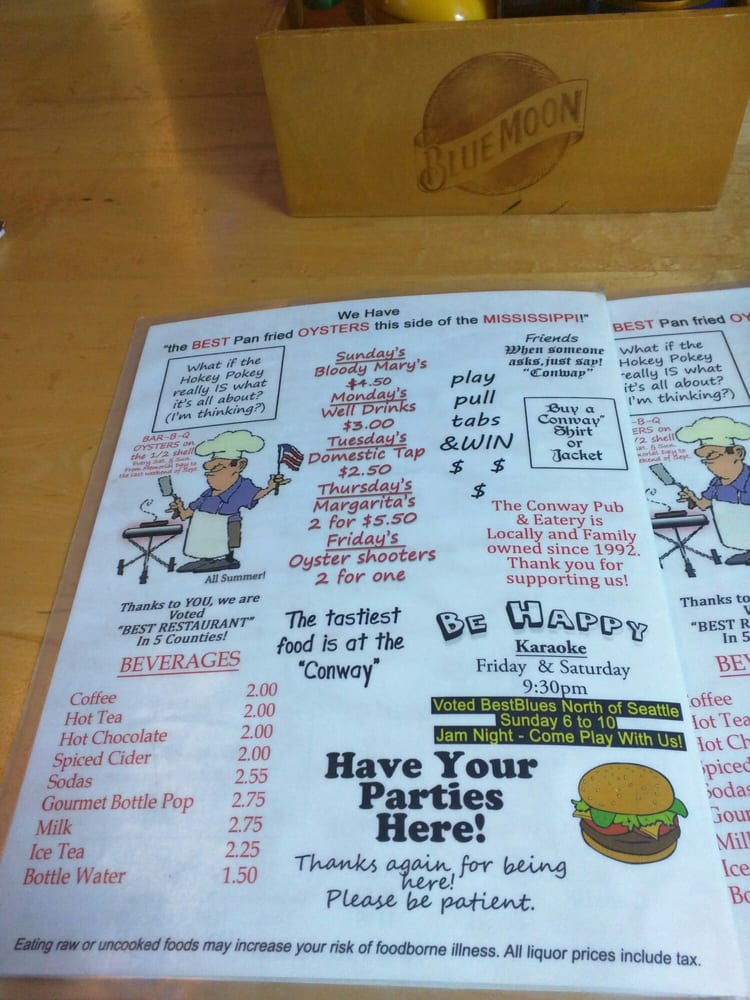 BLUE MOON
We Have
"the BEST Pan fried OYSTERS this side of the MISSISSIPPI!"
What if the
Hokey Pokey
really IS what
it's all about?
(I'm thinking?)
BAR-B-Q
OYSTERS on
the 1/2 shell
Every Sat. & Sun.
From Memorial Day to
the last weekend of Sept.
All Summer!
Thanks to YOU, we are
Voted
"BEST RESTAURANT"
In 5 Counties!
BEVERAGES
Coffee 2.00
Hot Tea 2.00
Hot Chocolate 2.00
Spiced Cider 2.00
Sodas 2.55
Gourmet Bottle Pop 2.75
Milk 2.75
Ice Tea 2.25
Bottle Water 1.50
Sunday's
Bloody Mary's
$4.50
Monday's
Well Drinks
$3.00
Tuesday's
Domestic Tap
$2.50
Thursday's
Margarita's
2 for $5.50
Friday's
Oyster shooters
2 for one
The tastiest
food is at the
"Conway"
play
pull
tabs
&WIN
$ $
$
Friends
When someone
asks, just say!
"Conway"
Buy a
Conway"
Shirt
or
Jacket
The Conway Pub
& Eatery is
Locally and Family
owned since 1992.
Thank you for
supporting us!
BE HAPPY
Karaoke
Friday & Saturday
9:30pm
Voted BestBlues North of Seattle
Sunday 6 to 10
Jam Night - Come Play With Us!
Have Your
Parties
Here!
Thanks again for being
here!
Please be patient.
Eating raw or uncooked foods may increase your risk of foodborne illness. All liquor prices include tax.
BEST Pan fried OY
What if the
Hokey Pokey
really IS what
it's all about?
(I'm thinking?)
-B-Q
ERS on
/2 shell
Thanks to
"BEST R
In 5
BEV
offee
Hot Tea
Hot Ch
Spiced
Sodas
Gour
Milk
Ice
Bo